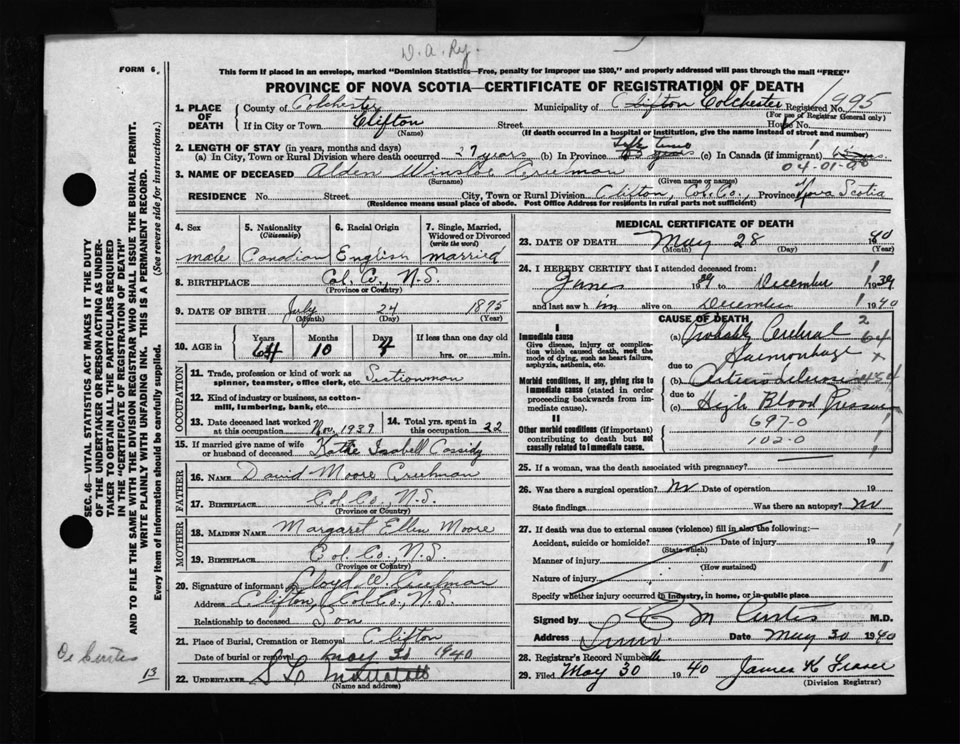 D. A. Reg.
FORM 6.
This form if placed in an envelope, marked "Dominion Statistics—Free, penalty for improper use $300," and properly addressed will pass through the mail "FREE"
PROVINCE OF NOVA SCOTIA—CERTIFICATE OF REGISTRATION OF DEATH
1. PLACE OF DEATH
County of Colchester Municipality of Clifton Colchester Registered No. 1995
(For use of Registrar General only)
If in City or Town Clifton Street House No.
(Name) (If death occurred in a hospital or institution, give the name instead of street and number)
2. LENGTH OF STAY (in years, months and days)
(a) In City, Town or Rural Division where death occurred 27 years (b) In Province years (c) In Canada (if immigrant)
04-01-90
3. NAME OF DECEASED Alden Winsloe Creelman
(Surname) (Given name or names)
RESIDENCE No. Street City, Town or Rural Division Clifton, Col. Co., Province Nova Scotia
(Residence means usual place of abode. Post Office Address for residents in rural parts not sufficient)
4. Sex male
5. Nationality (Citizenship) Canadian
6. Racial Origin English
7. Single, Married, Widowed or Divorced (write the word) married
8. BIRTHPLACE Col. Co., N.S.
(Province or Country)
9. DATE OF BIRTH July 24 1875
(Month) (Day) (Year)
10. AGE in Years 64 Months 10 Days 4 If less than one day old hrs. or min.
OCCUPATION
11. Trade, profession or kind of work as spinner, teamster, office clerk, etc. Sectionman
12. Kind of industry or business, as cotton-mill, lumbering, bank, etc.
13. Date deceased last worked at this occupation Nov, 1939
14. Total yrs. spent in this occupation 22
15. If married give name of wife or husband of deceased Isabell Cassidy
FATHER
16. NAME David Moore Creelman
17. BIRTHPLACE Col. Co., N.S.
(Province or Country)
MOTHER
18. MAIDEN NAME Margaret Ellen Moore
19. BIRTHPLACE Col. Co., N.S.
(Province or Country)
20. Signature of informant Lloyd W. Creelman
Address Clifton, Col. Co., N.S.
Relationship to deceased Son
21. Place of Burial, Cremation or Removal Clifton
Date of burial or removal May 30 1940
22. UNDERTAKER
(Name and address)
MEDICAL CERTIFICATE OF DEATH
23. DATE OF DEATH May 28 1940
(Month) (Day) (Year)
24. I HEREBY CERTIFY that I attended deceased from:
June 1939 to December 1939
and last saw him alive on December 1940
CAUSE OF DEATH
I
Immediate cause
Give disease, injury or complication which caused death, not the mode of dying, such as heart failure, asphyxia, asthenia, etc.
(a) Probably Cerebral Haemorrhage
due to
Morbid conditions, if any, giving rise to immediate cause (stated in order proceeding backwards from immediate cause).
(b) Arterio Sclerosis
due to
(c) High Blood Pressure
II
Other morbid conditions (if important) contributing to death but not causally related to immediate cause.
697-0
102-0
25. If a woman, was the death associated with pregnancy?
26. Was there a surgical operation? No Date of operation 19
State findings Was there an autopsy? no
27. If death was due to external causes (violence) fill in also the following:—
Accident, suicide or homicide? Date of injury 19
(State which)
Manner of injury
(How sustained)
Nature of injury
Specify whether injury occurred in industry, in home, or in public place
Signed by C M Curtis M.D.
Address Truro Date May 30 1940
28. Registrar's Record Number
29. Filed May 30 1940 James K Fraser
(Division Registrar)
SEC. 46—VITAL STATISTICS ACT MAKES IT THE DUTY OF THE UNDERTAKER OR PERSON ACTING AS UNDERTAKER TO OBTAIN ALL THE PARTICULARS REQUIRED IN THE "CERTIFICATE OF REGISTRATION OF DEATH" AND TO FILE THE SAME WITH THE DIVISION REGISTRAR WHO SHALL ISSUE THE BURIAL PERMIT.
WRITE PLAINLY WITH UNFADING INK. THIS IS A PERMANENT RECORD.
Every item of information should be carefully supplied. (See reverse side for instructions.)
Dr Curtis
13